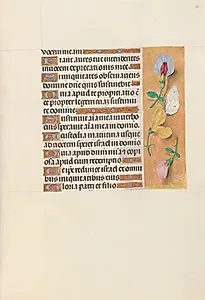 vocem meam
Fiant aures tue intendentes
in vocem deprecationis mee
Si iniquitates observaveris
domine dñe quis sustinebit
Quia apud te propitiatio est
et propter legem tuam sustinui
te domine
Sustinuit aīa mea in verbo
eius speravit aīa mea in dn̄o
A custodia matutina usque
ad noctem speret israel in dn̄o
Quia apud dn̄m mīa et copi
osa apud eum redemptio
Et ipse redimet israel ex omnibus
iniquitatibus eius
Gloria patri et filio